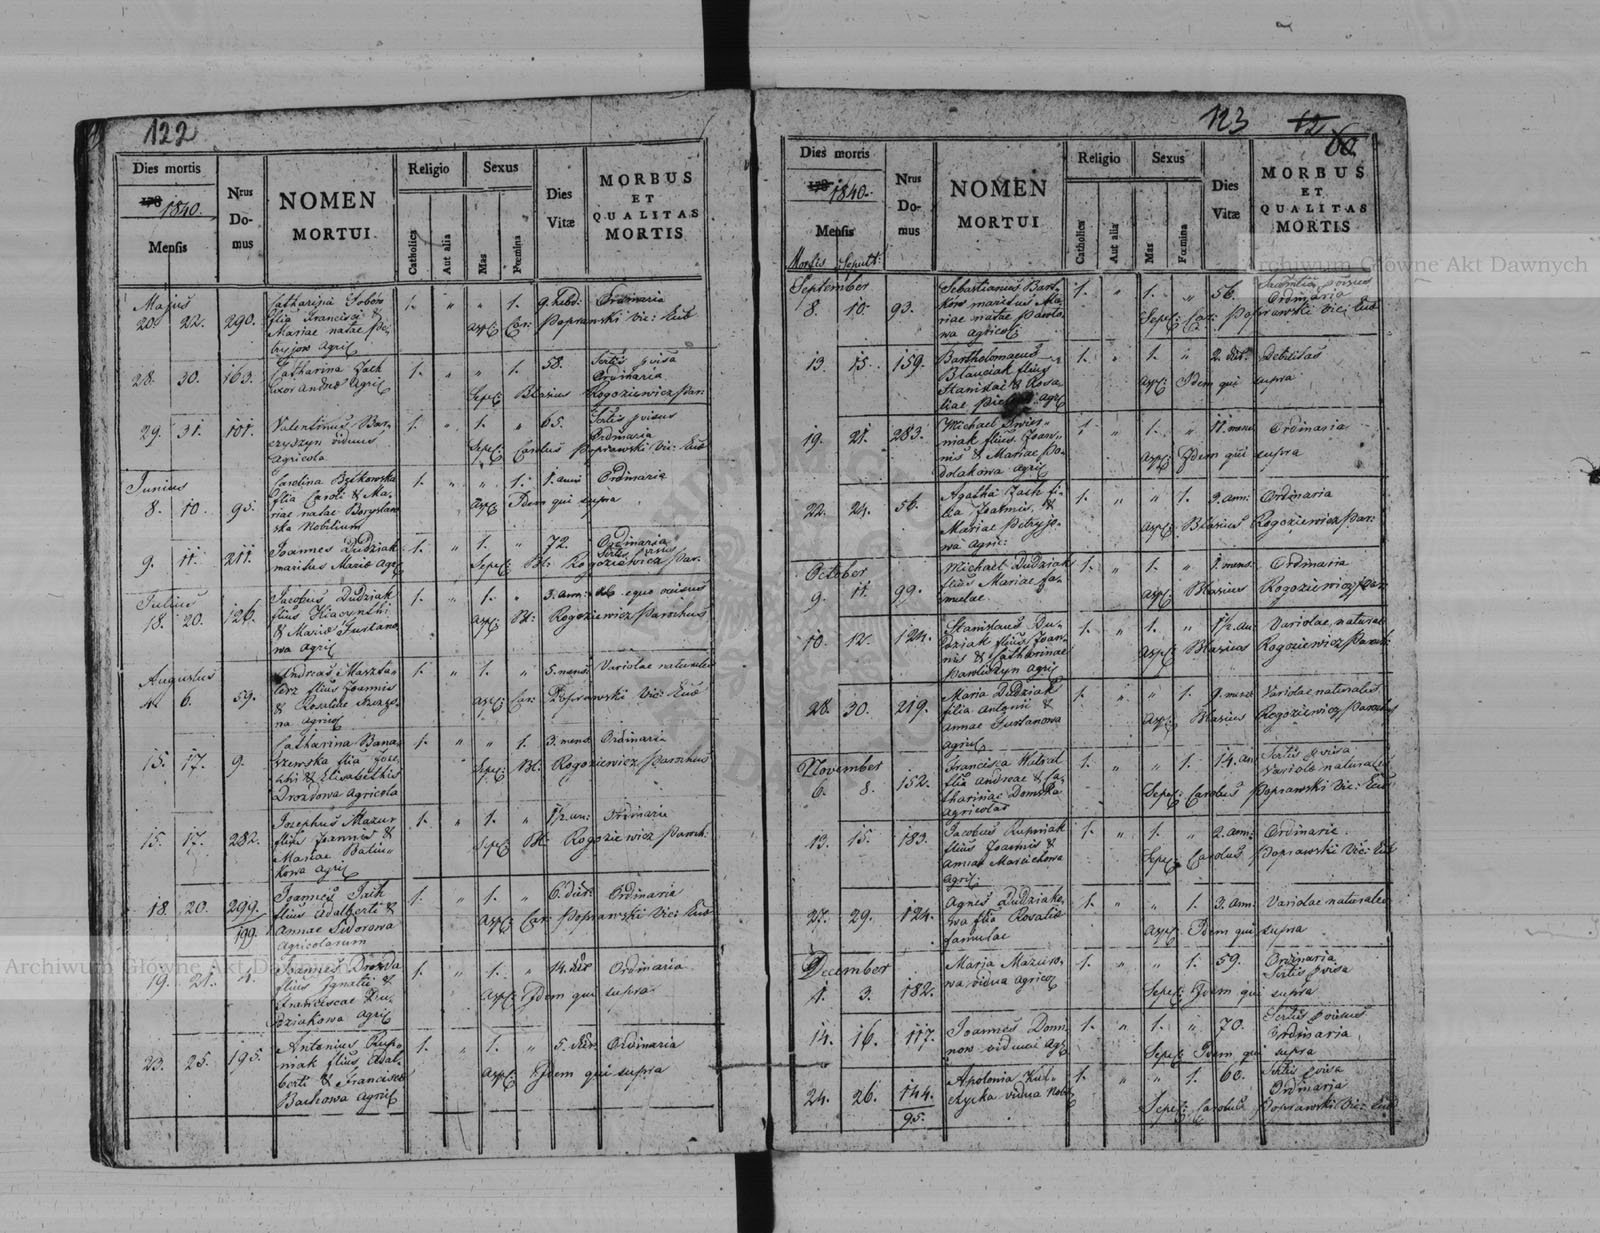 122
Dies mortis
1840.
Mensis
Nrus
Do-
mus
NOMEN
MORTUI
Religio
Catholica
Aut alia
Sexus
Mas
Fœmina
Dies
Vitæ
MORBUS
ET
QUALITAS
MORTIS
Majus
20. 22. 290.
Catharina
filia Francisci &
Mariae natae
Agric
1. " " 1. 9. hebd: Ordinaria
asp: Car: Poprawski Vic: Cub
28. 30. 163.
Catharina Zach
uxor Andreae Agric
1. " " 1. 58. Sertis pvisa
Ordinaria
Sepel: Blasius Rogoziewicz Par:
29. 31. 101.
Valentinus Bar-
czyszyn viduus
Agricola
1. " 1. " 65. Sertis pvisus
Ordinaria
Sepel: Carolus Poprawski Vic: Cub
Junius
8. 10. 95.
Carolina Bętkowska
filia Caroli & Ma-
riae natae Borysław
ska Nobilium
1. " " 1. 1. anni Ordinaria
asp: Idem qui supra
9. 11. 211.
Joannes Dudziak
maritus Mariae Agr
1. " 1. " 72. Ordinaria
Sertis pvisus
Sepel: Bl: Rogoziewicz Par.
Julius
18. 20. 126.
Jacobus Dudziak
filius Hiacynthi
& Mariae Furtano
wa Agric
1. " 1. " 3. ann: ab equo occisus
asp: Bl: Rogoziewicz Parochus
Augustus
4. 6. 59.
Andreas Maszta-
lerz filius Joannis
& Rosaliae
na Agricol
1. " 1. " 5. mens: Variolae naturales
asp: Car: Poprawski Vic: Cub
15. 17. 9.
Catharina Bana-
szewska filia Jose-
phi & Elisabethis
Drozdowa Agricola
1. " " 1. 3. mens Ordinaria
Sepel: Bl: Rogoziewicz Parochus
15. 17. 282.
Josephus Mazur
filius Joannis &
Mariae Batiu-
kowa Agric
1. " 1. " 1½ an: Ordinaria
Sepel: Bl: Rogoziewicz Paroch:
18. 20. 299.
199.
Joannes Jach
filius Adalberti &
Annae Sidorowa
Agricolarum
1. " 1. " 6. dier: Ordinaria
asp: Car: Poprawski Vic: Cub
19. 21. 4.
Joannes Drozda
filius Ignatii &
Franciscae Du-
dziakowa Agric
1. " 1. " 14. dier Ordinaria
asp: Idem qui supra
23. 25. 195.
Antonius Rup-
niak filius Adal-
berti & Franciscae
Bachowa Agric
1. " 1. " 5. dier. Ordinaria
asp: Idem qui supra
123
12
60
Dies mortis
1840.
Mensis
Mortis Sepult:
Nrus
Do-
mus
NOMEN
MORTUI
Religio
Catholica
Aut alia
Sexus
Mas
Fœmina
Dies
Vitæ
MORBUS
ET
QUALITAS
MORTIS
September
8. 10. 93.
Sebastianus Bart-
ków maritus Ma-
riae natae Pawło-
wa Agricol:
1. " 1. " 56. pvisus
Ordinaria
Sepel: Car: Poprawski Vic: Cub
13. 15. 159.
Bartholomaeus
filius
Stanislai & Rosa-
liae Agric
1. " 1. " 2. dier. Debilitas
asp: Idem qui supra
19. 21. 283.
Michael Świer-
niak filius Joan-
nis & Mariae Po-
dolakowa Agric
1. " 1. " 11. mens Ordinaria
asp: Idem qui supra
22. 24. 56.
Agatha Zach fi-
lia Joannis &
Mariae Petryjo-
wa Agric:
1. " " 1. 9. ann: Ordinaria
asp: Blasius Rogoziewicz Par:
October
9. 11. 99.
Michael Dudziak
filius Mariae fa-
mulae
1. " 1. " 1. mens. Ordinaria
asp: Blasius Rogoziewicz Par
10. 12. 124.
Stanislaus Du-
dziak filius Joan-
nis & Catharinae
Pawliszyn Agric
1. " 1. " 1½. an: Variolae natural
asp: Blasius Rogoziewicz Paroch:
28. 30. 219.
Maria Dudziak
filia Antonii &
Annae Furtanowa
Agric
1. " " 1. 9. mens Variolae naturales
asp: Blasius Rogoziewicz Parochus
November
6. 8. 152.
Francisca
filia Andreae & Ca-
tharinae Domska
Agricolae
1. " " 1. 14. an Sertis pvisa
Variolae naturales
Sepel: Carolus Poprawski Vic: Cub:
13. 15. 183.
Jacobus Rupniak
filius Joannis &
Annae Marcichowa
Agric:
1. " 1. " 2. ann: Ordinarie
Sepel: Carolus Poprawski Vic: Cub
27. 29. 124.
Agnes Dudziako-
wa filia Rosaliae
famulae
1. " " 1. 3. ann. Variolae naturales
asp: Idem qui supra
December
1. 3. 182.
Maria Mazuro-
wa vidua Agricol
1. " " 1. 59. Ordinaria
Sertis pvisa
Sepel: Idem qui supra
14. 16. 117.
Joannes Domi-
now viduus Agr
1. " 1. " 70. Sertis pvisus
Ordinaria
Sepel: Idem qui supra
24. 26. 144.
95.
Apolonia Kul-
czycka vidua Nobil
1. " " 1. 60. Sertis pvisa
Ordinaria
Sepel: Carolus Poprawski Vic: Cub
Archiwum Główne Akt Dawnych
Archiwum Główne Akt Dawnych